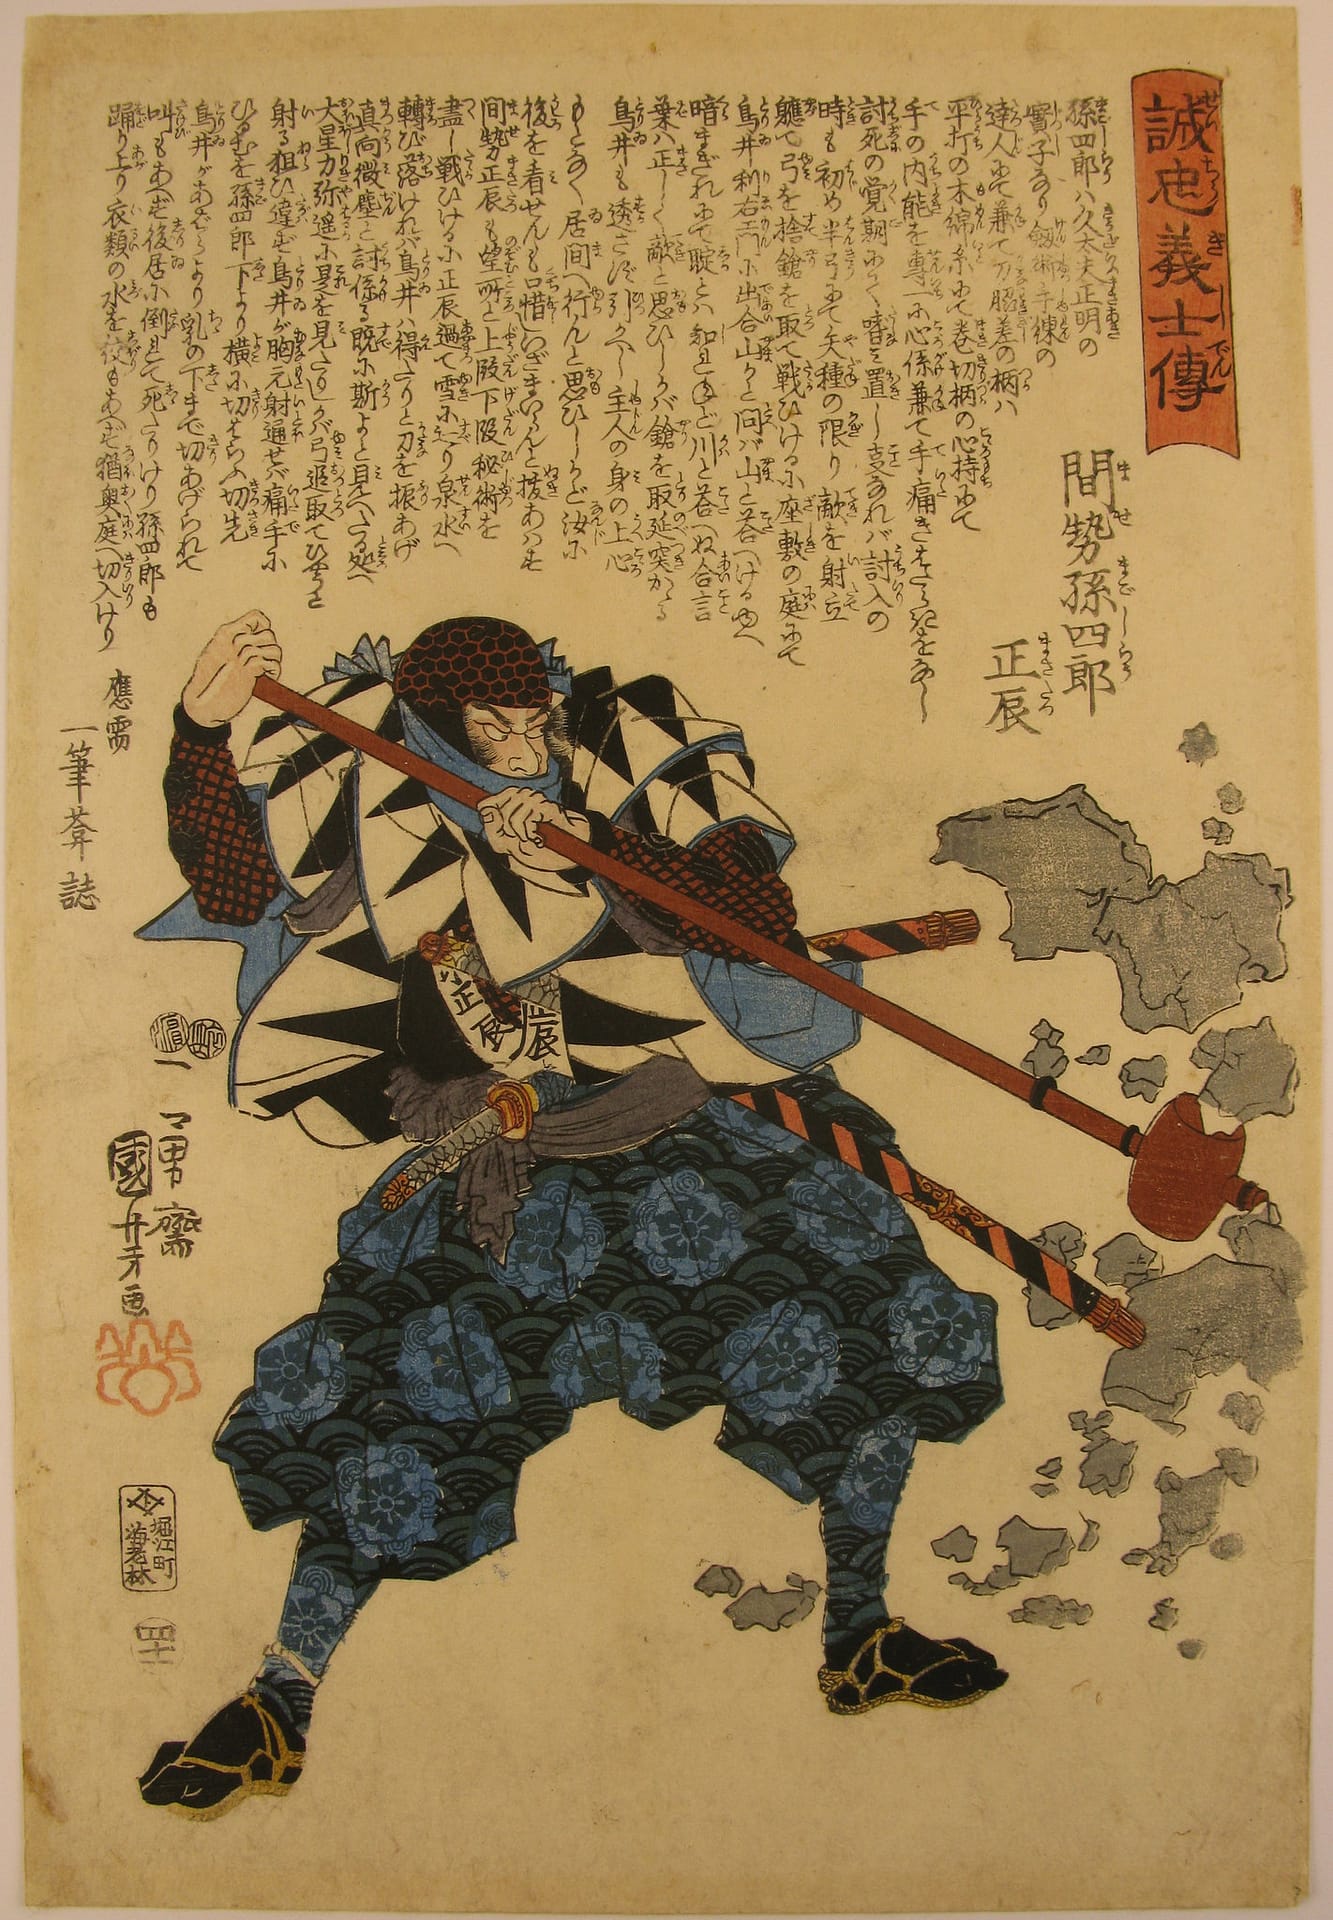 誠忠義士傳
間㔟孫四郎
正辰
孫四郎ハ久太夫正明の
實子なり劔術手練の
達人にて兼て刀脇差の柄ハ
平打の木綿糸にて巻切柄の心持にて
手の内能を専一に心係兼て手痛き
討死の覚期にて
時も初め半弓にて矢種の限り敵を射立
軈て弓を捨鎗を取て戦ひけるに座敷の庭にて
鳥井利右エ門に出合山かと問バ山と荅へけるゆへ
暗まぎれにて聢とハ知れねど川と荅へぬ合言
葉ハ正しく敵と思ひしかバ鎗を取延突かゝる
鳥井も透さず引かへし主人の身の上心
もとなく居間へ行んと思ひしかど汝に
後を看せんも口惜しいざまいらんと拔あハせ
間㔟正辰も望所と上段下段秘術を
盡し戦ひけるに正辰過て雪にすべり泉水へ
轉び落けれバ鳥井ハ得たりと刀を振あげ
真向微塵と討係る既に斯よと見へたる処へ
大星力弥遥に是を見たりしが弓追取てひやうと
射る狙ひ違ず鳥井が胸元射通せバ痛手に
ひるむを孫四郎下より横に切はらふ切先
鳥井があばらより乳の下まで切あげられて
叫もあへず後居に倒れて死たりけり孫四郎も
踊り上り衣類の水を絞もあへず猶奥庭へ切入けり
應需
一筆葊誌
正辰
一勇齋
國芳画
堀江町
海老林
四十